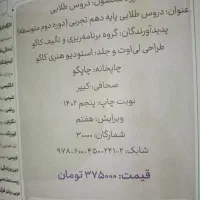 دروس طلایی
عنوان: دروس طلایی پایه دهم تجربی (دوره دوم متوسطه)
پدیدآورندگان: گروه برنامه‌ریزی و تألیف کاگو
طراحی لی‌اوت و جلد: استودیو هنری کاگو
چاپخانه: چاپگو
صحافی: کبیر
نوبت چاپ: پنجم ۱۴۰۲
ویرایش: هفتم
شمارگان: ۳۰۰۰۰
شابک: ۲-۰۲۴۱-۴۵۰-۶۰۰-۹۷۸
قیمت: ۳۷۵۰۰۰ تومان